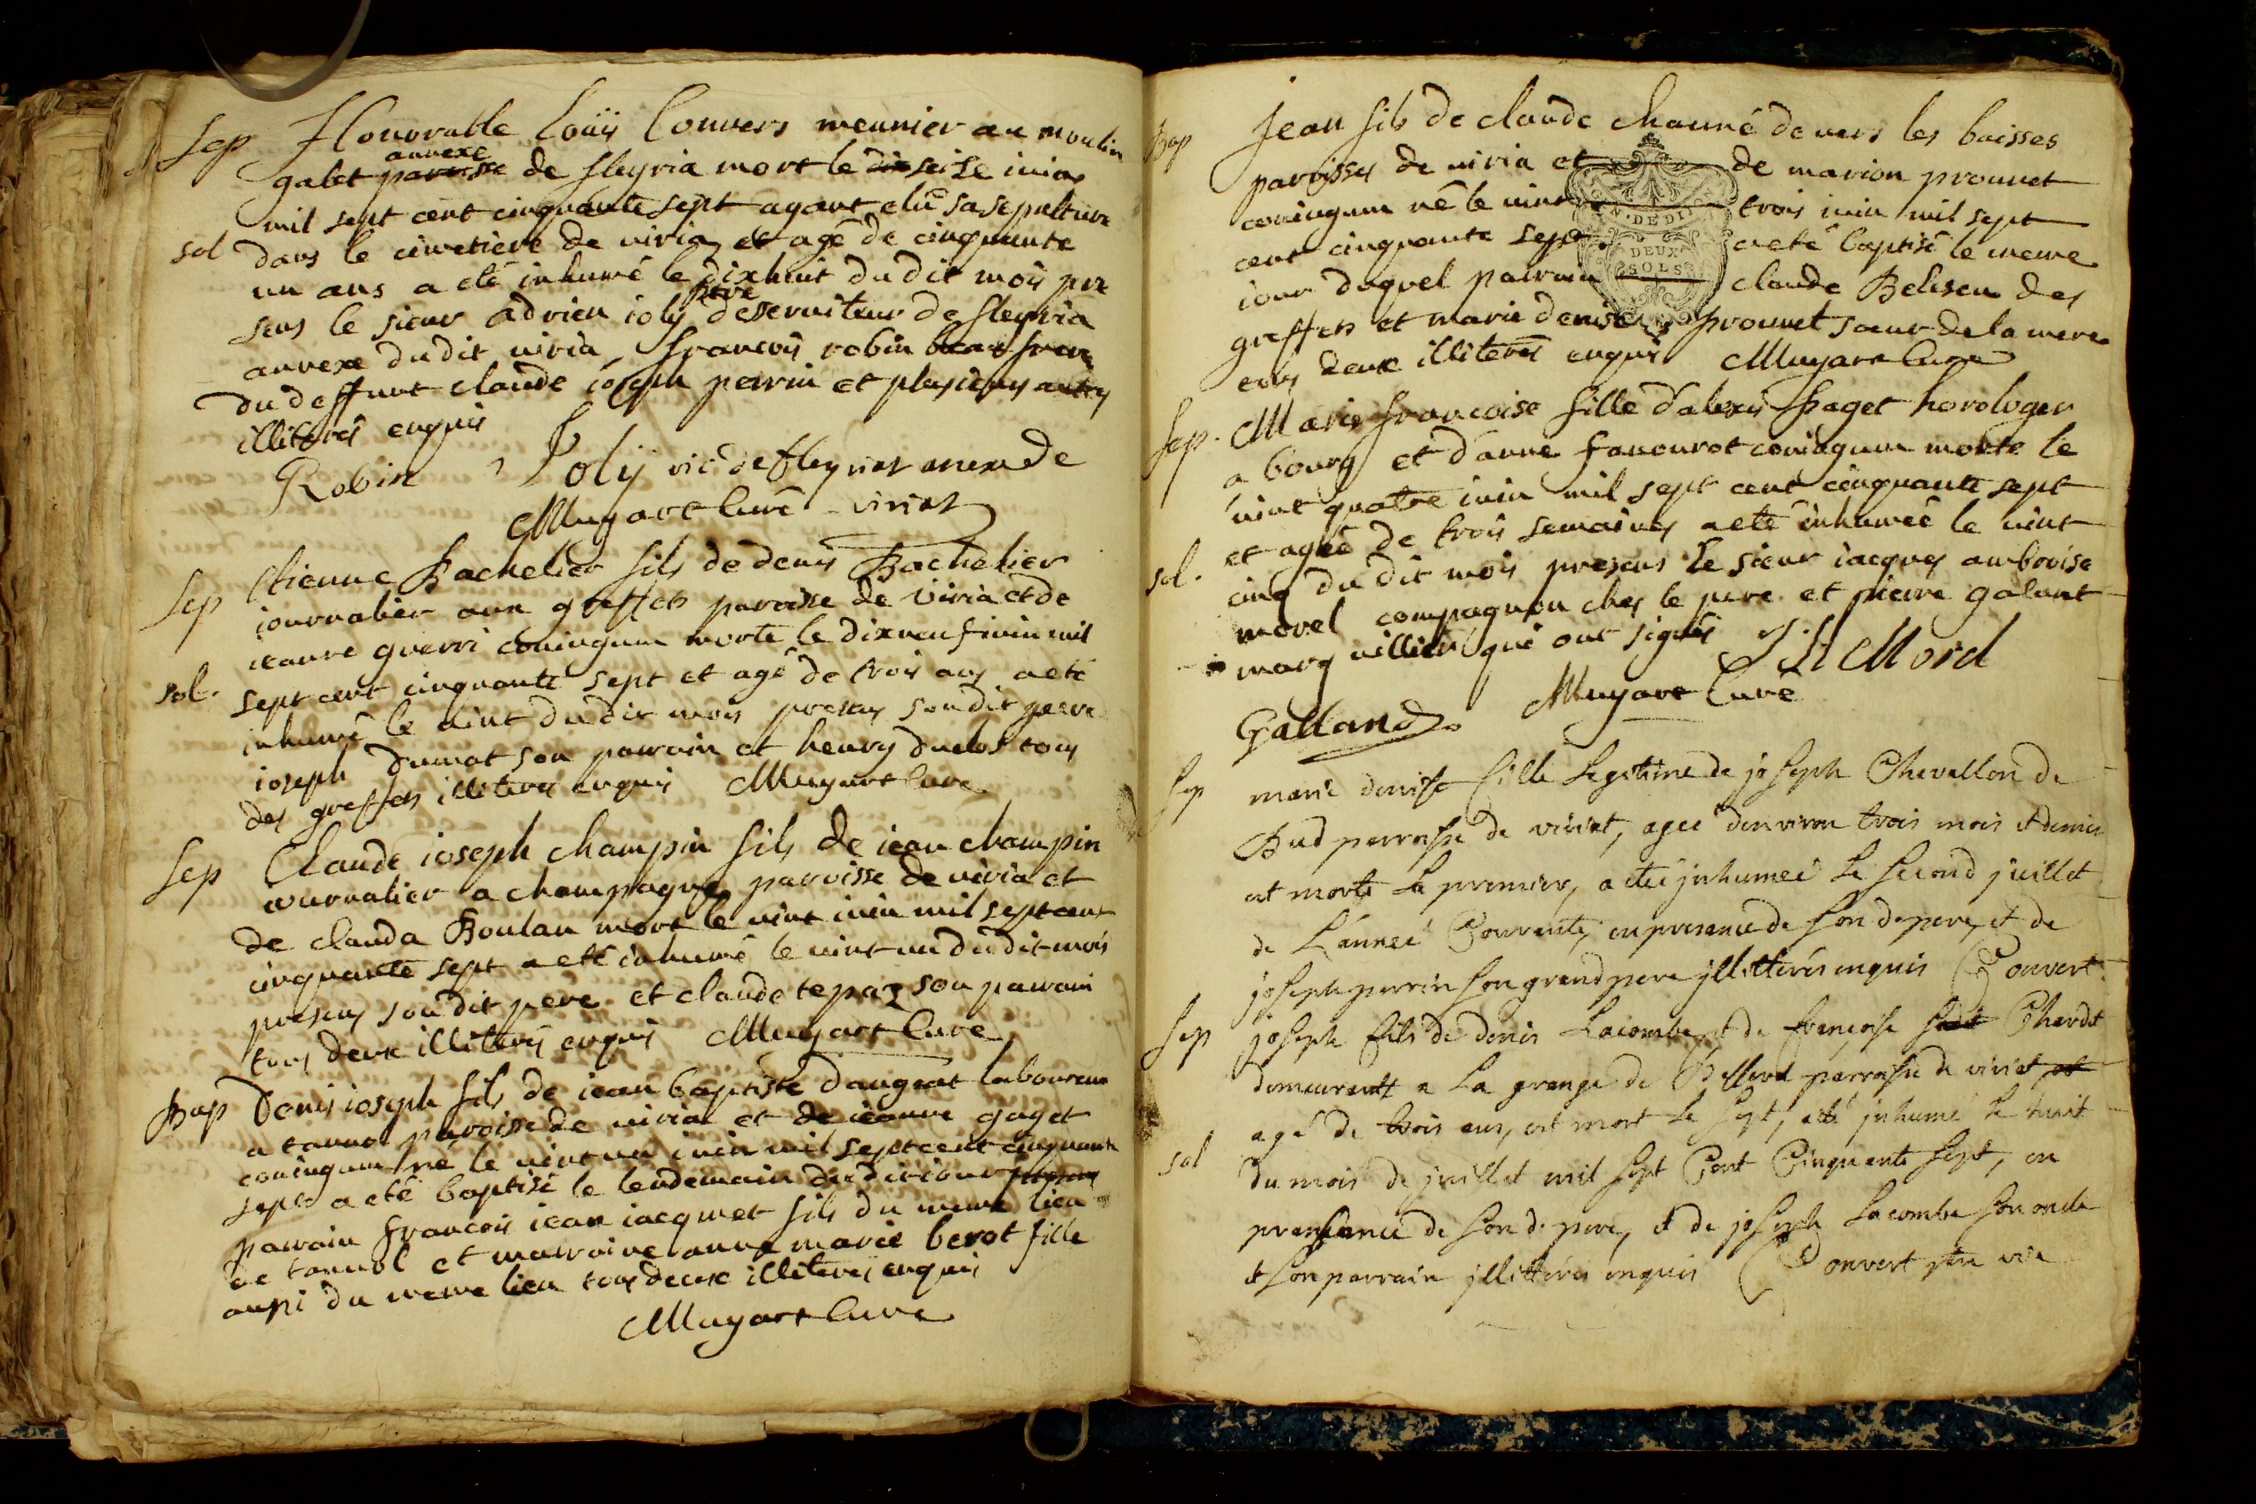 Sep Honorable Louÿ Convers meunier au moulin
annexe
galet paroisse de fleyria mort le dix seise iuin
mil sept cent cinquante sept ayant elû sa sepulture
sol dans le cimetiere de viria et agé de cinquante
un ans a eté inhumé le dixhuit du dit mois pre
ptre
sens le sieur adrien ioly desserviteur de fleyria
annexe du dit viria, francois robin beau frere
du deffunt claude ioseph perrin et plusieurs autres
illiterés enquis
Robin Joly vic de fleyriat anexe de
Mugart Curé viriat
Sep Etienne Bachelier fils de denis Bachelier
iournalier aux greffets paroisse de viria et de
ieanne guerri coniugum morte le dixneuf iuin mil
sol. sept cent cinquante sept et agé de trois ans a eté
inhumé le vint du dit mois presens son dit pere
ioseph dumat son parrain et henry duclos tous
des greffets illiterés enquis Mugart Curé
Sep Claude ioseph champin fils de iean champin
iournalier a champagne paroisse de viria et
de clauda Boulan mort le vint iuin mil sept cent
cinquante sept a eté inhumé le vint un du dit mois
presens son dit pere et claude tepaz son parrain
tous deux illiterés enquis Mugart Curé
Bap Denis ioseph fils de iean baptiste dangeat laboureur
a tannol paroisse de viria et de ieanne gaget
coniugum né le vint un iuin mil sept cent cinquante
sept a eté baptisé le lendemain du dit iour
parrain francois iean iacquet fils du meme lieu
de tannol et marraine anne marie berot fille
aussi du meme lieu tous deux illiterés enquis
Mugart Curé
Bap Jean fils de claude channé de vers les baisses
paroisses de viria et de marion prounet
coniugum né le vint trois iuin mil sept
cent cinquante sept a eté baptisé le meme
iour duquel parrain claude Belisen des
greffets et marie denise prounet soeur de la mere
eux deux illiterés enquis Mugart Cure
GEN. DE DIJON
DEUX
SOLS
Sep. Marie francoise fille d'alexis Paget horologer
a bourg et d'anne fanourot coniugum morte le
vint quatre iuin mil sept cent cinquante sept
et agée de trois semaines a eté inhumée le vint
sol. cinq du dit mois presens le sieur iacques amboise
morel compagnon ches le pere et pierre galant
marguillier qui ont signés J. A Morel
Galland Mugart Curé
Sep marie denise fille Legitime de joseph Chevallon de
Bud parroisse de viriat, ageé denviron trois mois et demie
est morte Le premier, a eteé jnhumeé Le second juillet
de L'anneé Courante, en presence de son d. pere, et de
joseph perrin son grand pere jllitterés enquis Convert
Sep joseph fils de denis Lacombe et de francoise Chardet
demeurantt a La grange de Bellevd parroisse de viriat
agé de trois ans, est mort Le sept, a eté jnhumé Le huit
sol du mois de juillet mil sept Cent Cinquante sept, en
presence de son d. pere, et de joseph Lacombe son oncle
et son parrain jllitterés enquis Convert ptre vic